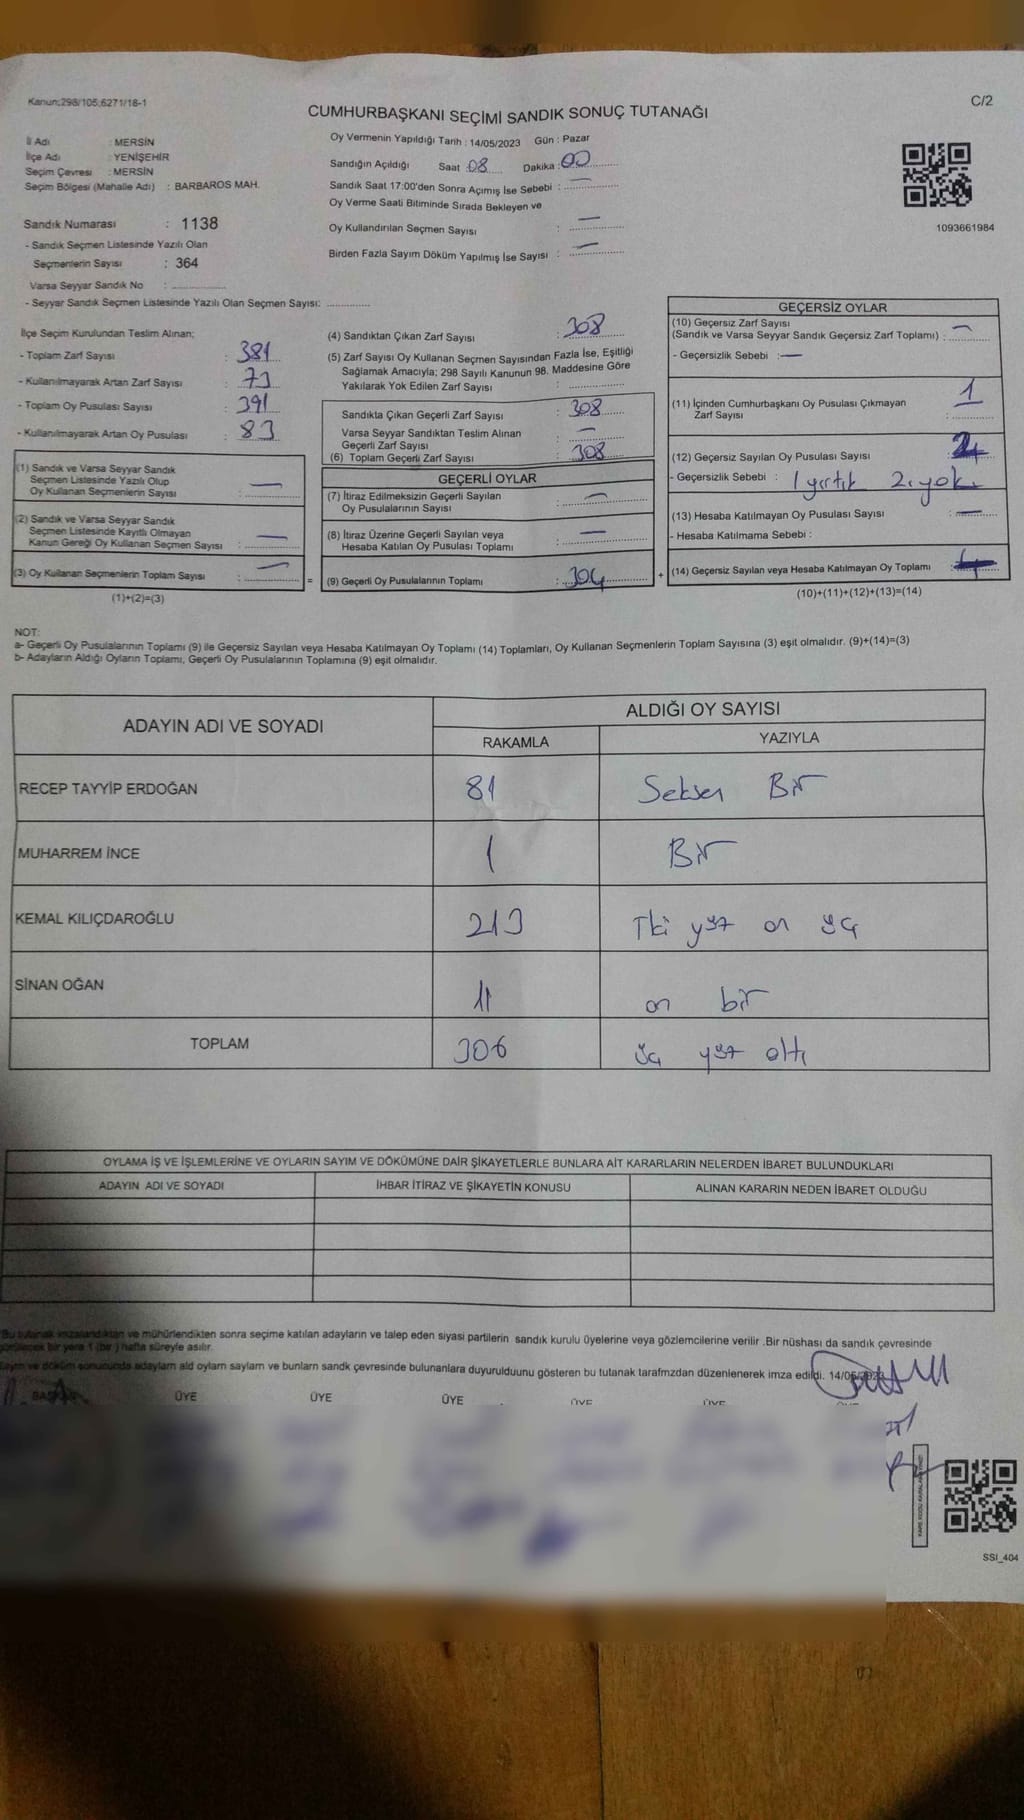 Kanun;298/105,6271/18-1
C/2
CUMHURBAŞKANI SEÇİMİ SANDIK SONUÇ TUTANAĞI
İl Adı : MERSİN
İlçe Adı : YENİŞEHİR
Seçim Çevresi : MERSİN
Seçim Bölgesi (Mahalle Adı) : BARBAROS MAH.
Sandık Numarası : 1138
- Sandık Seçmen Listesinde Yazılı Olan
Seçmenlerin Sayısı : 364
Varsa Seyyar Sandık No :
- Seyyar Sandık Seçmen Listesinde Yazılı Olan Seçmen Sayısı:
Oy Vermenin Yapıldığı Tarih : 14/05/2023 Gün : Pazar
Sandığın Açıldığı Saat 08 Dakika : 00
Sandık Saat 17:00'den Sonra Açımış İse Sebebi : —
Oy Verme Saati Bitiminde Sırada Bekleyen ve
Oy Kullandırılan Seçmen Sayısı : —
Birden Fazla Sayım Döküm Yapılmış İse Sayısı : —
1093661984
İlçe Seçim Kurulundan Teslim Alınan;
- Toplam Zarf Sayısı : 381
- Kullanılmayarak Artan Zarf Sayısı : 73
- Toplam Oy Pusulası Sayısı : 391
- Kullanılmayarak Artan Oy Pusulası : 83
(1) Sandık ve Varsa Seyyar Sandık
Seçmen Listesinde Yazılı Olup
Oy Kullanan Seçmenlerin Sayısı : —
(2) Sandık ve Varsa Seyyar Sandık
Seçmen Listesinde Kayıtlı Olmayan
Kanun Gereği Oy Kullanan Seçmen Sayısı : —
(3) Oy Kullanan Seçmenlerin Toplam Sayısı : —
(1)+(2)=(3)
=
(4) Sandıktan Çıkan Zarf Sayısı : 308
(5) Zarf Sayısı Oy Kullanan Seçmen Sayısından Fazla İse, Eşitliği
Sağlamak Amacıyla; 298 Sayılı Kanunun 98. Maddesine Göre
Yakılarak Yok Edilen Zarf Sayısı :
Sandıkta Çıkan Geçerli Zarf Sayısı : 308
Varsa Seyyar Sandıktan Teslim Alınan
Geçerli Zarf Sayısı : —
(6) Toplam Geçerli Zarf Sayısı : 308
GEÇERLİ OYLAR
(7) İtiraz Edilmeksizin Geçerli Sayılan
Oy Pusulalarının Sayısı : —
(8) İtiraz Üzerine Geçerli Sayılan veya
Hesaba Katılan Oy Pusulası Toplamı : —
(9) Geçerli Oy Pusulalarının Toplamı : 304
+
GEÇERSİZ OYLAR
(10) Geçersiz Zarf Sayısı
(Sandık ve Varsa Seyyar Sandık Geçersiz Zarf Toplamı) : —
- Geçersizlik Sebebi : —
(11) İçinden Cumhurbaşkanı Oy Pusulası Çıkmayan
Zarf Sayısı : 1
(12) Geçersiz Sayılan Oy Pusulası Sayısı :
- Geçersizlik Sebebi : 1 yırtık 2.yok.
(13) Hesaba Katılmayan Oy Pusulası Sayısı : —
- Hesaba Katılmama Sebebi :
(14) Geçersiz Sayılan veya Hesaba Katılmayan Oy Toplamı :
(10)+(11)+(12)+(13)=(14)
NOT:
a- Geçerli Oy Pusulalarının Toplamı (9) ile Geçersiz Sayılan veya Hesaba Katılmayan Oy Toplamı (14) Toplamları, Oy Kullanan Seçmenlerin Toplam Sayısına (3) eşit olmalıdır. (9)+(14)=(3)
b- Adayların Aldığı Oyların Toplamı, Geçerli Oy Pusulalarının Toplamına (9) eşit olmalıdır.
ADAYIN ADI VE SOYADI
ALDIĞI OY SAYISI
RAKAMLA YAZIYLA
RECEP TAYYİP ERDOĞAN 81 Seksen Bir
MUHARREM İNCE 1 Bir
KEMAL KILIÇDAROĞLU 213 İki yüz on üç
SİNAN OĞAN 11 on bir
TOPLAM 306 üç yüz altı
OYLAMA İŞ VE İŞLEMLERİNE VE OYLARIN SAYIM VE DÖKÜMÜNE DAİR ŞİKAYETLERLE BUNLARA AİT KARARLARIN NELERDEN İBARET BULUNDUKLARI
ADAYIN ADI VE SOYADI İHBAR İTİRAZ VE ŞİKAYETİN KONUSU ALINAN KARARIN NEDEN İBARET OLDUĞU
Bu tutanak imzalandıktan ve mühürlendikten sonra seçime katılan adayların ve talep eden siyasi partilerin sandık kurulu üyelerine veya gözlemcilerine verilir .Bir nüshası da sandık çevresinde
görülecek bir yere 1 (bir ) hafta süreyle asılır.
Sayım ve döküm sonucunda adaylarn ald oylarn saylarn ve bunlarn sandk çevresinde bulunanlara duyurulduunu gösteren bu tutanak tarafmzdan düzenlenerek imza edildi. 14/05/2023
BAŞKAN ÜYE ÜYE ÜYE ÜYE ÜYE ÜYE
SSI_404